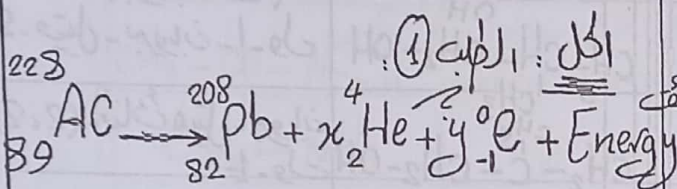 الحل: المطلب ①:
²²⁸₈₉AC → ²⁰⁸₈₂Pb + x ⁴₂He + y ⁰₋₁e + Energy